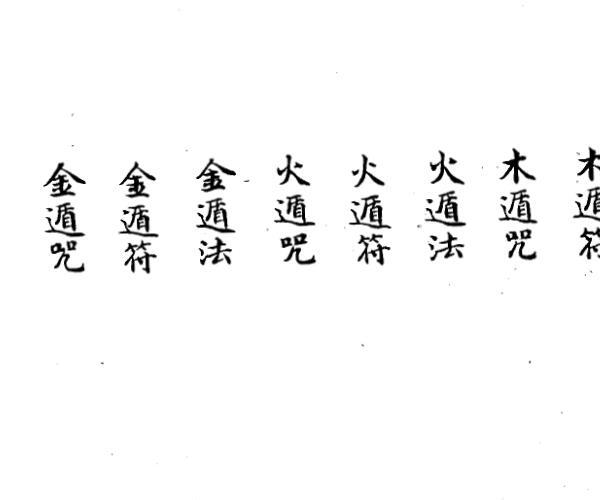 木遁符
木遁咒
火遁法
火遁符
火遁咒
金遁法
金遁符
金遁咒